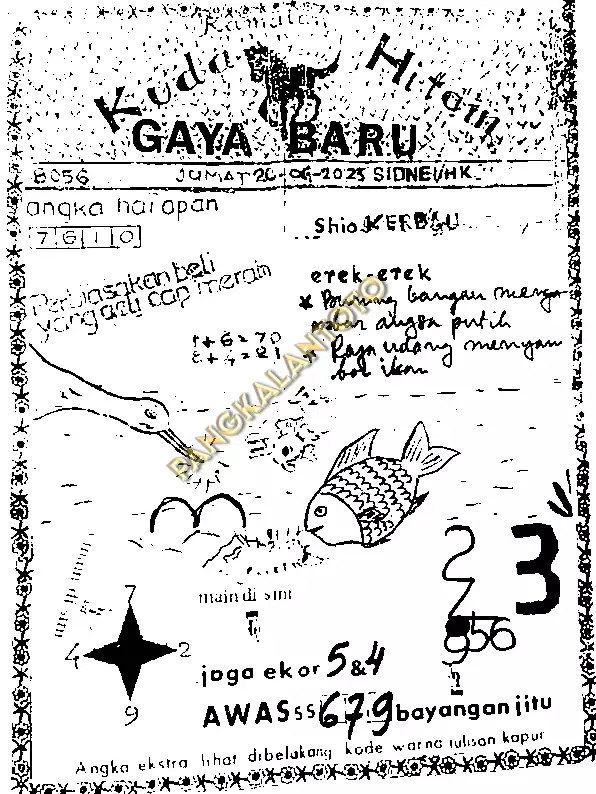 Ramalan
Kuda Hitam
GAYA BARU
8056 JUMAT 20-06-2025 SIDNEI/HK
angka harapan
7610
Shio KERBAU
Perbiasakan beli
yang asli cap merah
erek-erek
* Burung bangau menya
angsa putih
1+6=70
8+4=21
* Raja udang menyam
bar ikan
PANGKALANTOTO
3
7
main di sini
4 2
956
9
joga ekor 5&4
AWASss 679 bayangan jitu
Angka ekstra lihat dibelakang kode warna tulisan kapur